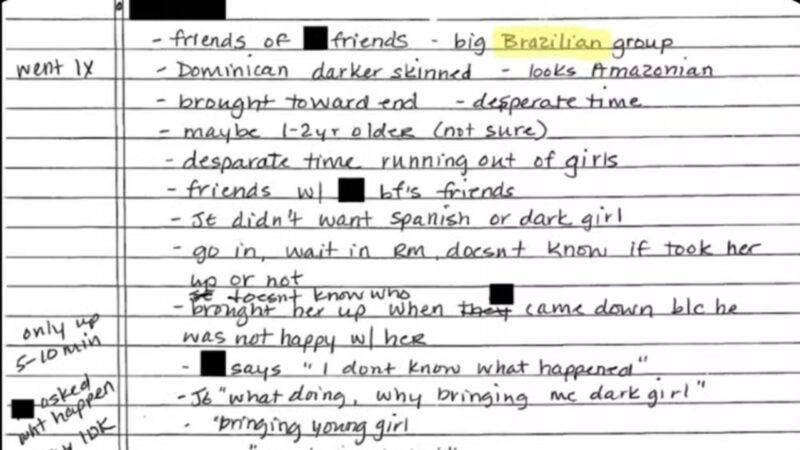 - friends of friends - big Brazilian group
went 1X
- Dominican darker skinned - looks Amazonian
- brought toward end - desperate time
- maybe 1-2yr older (not sure)
- desparate time running out of girls
- friends w/ bf's friends
- JE didn't want spanish or dark girl
- go in, wait in RM, doesnt know if took her
up or not
doesnt know who
- brought her up when they came down b/c he
was not happy w/ her
only up
5-10 min
- says "I dont know what happened"
asked
what happen
- JE "what doing, why bringing me dark girl"
IDK
- "bringing young girl